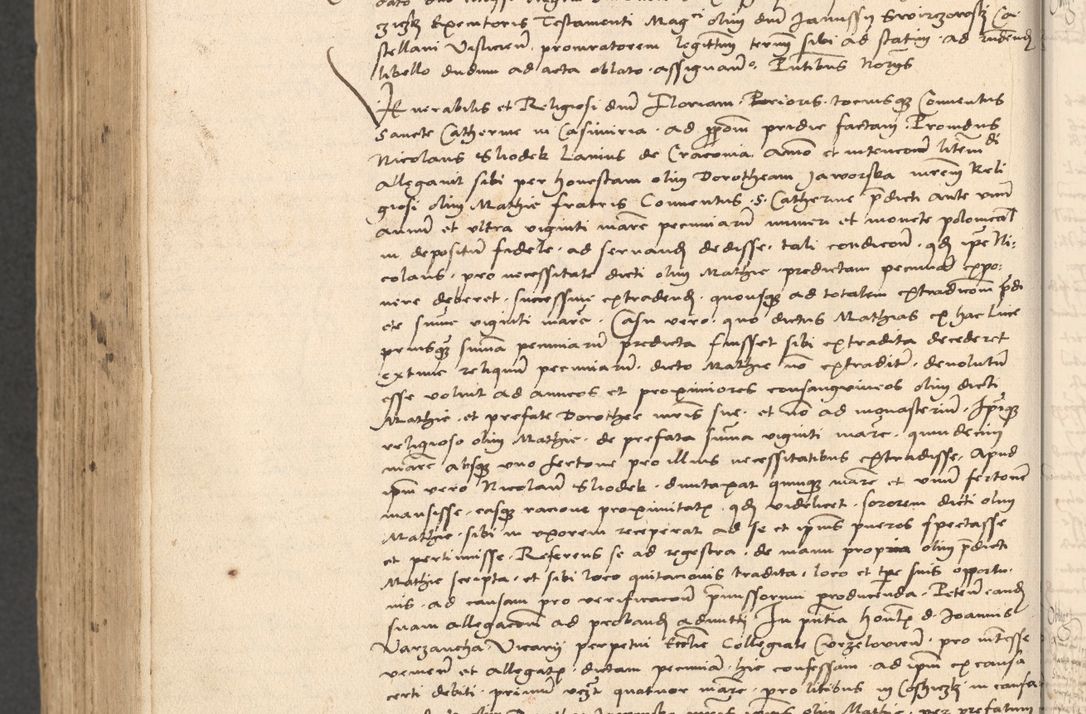 zisky Executoris Testamenti Magci olim dni Janussy Swirczowsky Ca
stellani Visliciens, procuratorem legittim termi sibi ad statim ad
libello dudum ad acta oblato assignan.
Venerabilis et Religiosi dni Floriani Prioris totiusq Conventus
Sancte Catherine in Casimiria ad pridie factam Providus
Nicolaus Sliodek Lanius de Cracovia Animo et intencione litem
allegavit sibi per honestam olim Dorotheam Jaworska mrem Reli
giosi olim Mathie fratris Conventus S. Catherine pdicti ante unum
annum et ultra viginti marc pecuniarum numeri et monete polonical
in depositum fidele ad servand dedisse tali condicione qd ipe Ni:
colaus pro necessitate dicti olim Mathie predictam pecuniam expo:
nere deberet successive extradend quousq ad totalem extradicionem pdi
cte sume viginti marc. Casu vero quo dictus Mathias ex hac luce
priusq suma pecuniarum predicta fuisset sibi extradita decederet
extunc reliquum pecuniarum dicto Mathie no extraditum devolutum
esse voluit ad amicos et proximiores consanguineos olim dicti
Mathie et prefate Dorothee mris sue et no ad monasterium. Ipsiq
religioso olim Mathie de prefata suma viginti marc quindecim
marc absq uno fertone pro illius necessitatibus extradisse. Apud
ipm vero Nicolaum Sliodek duntaxat quinq marc et unum fertonem
mansisse easq racione proximitatis qd videlicet sororem dicti olim
Mathie sibi in uxorem receperat ad se et ipius pueros spectasse
et pertinuisse. Referens se ad regestra de manu propria olim pdicti
Mathie scripta et sibi loco quitacionis tradita loco et tpe suis opportu-
nis ad causam pro verificacione pmissorum producenda. Peten eand
suam allegacionem ad proband admitti. In pntia hon d. Joannis
Varzancha Vicarij perpetui Ecclie Collegiate Curzeloviens pro interesse
venien et allegatis dictam pecuniam hic confessam ad ipm ex causa
certi debiti primum quatuor marc pro libris in causa